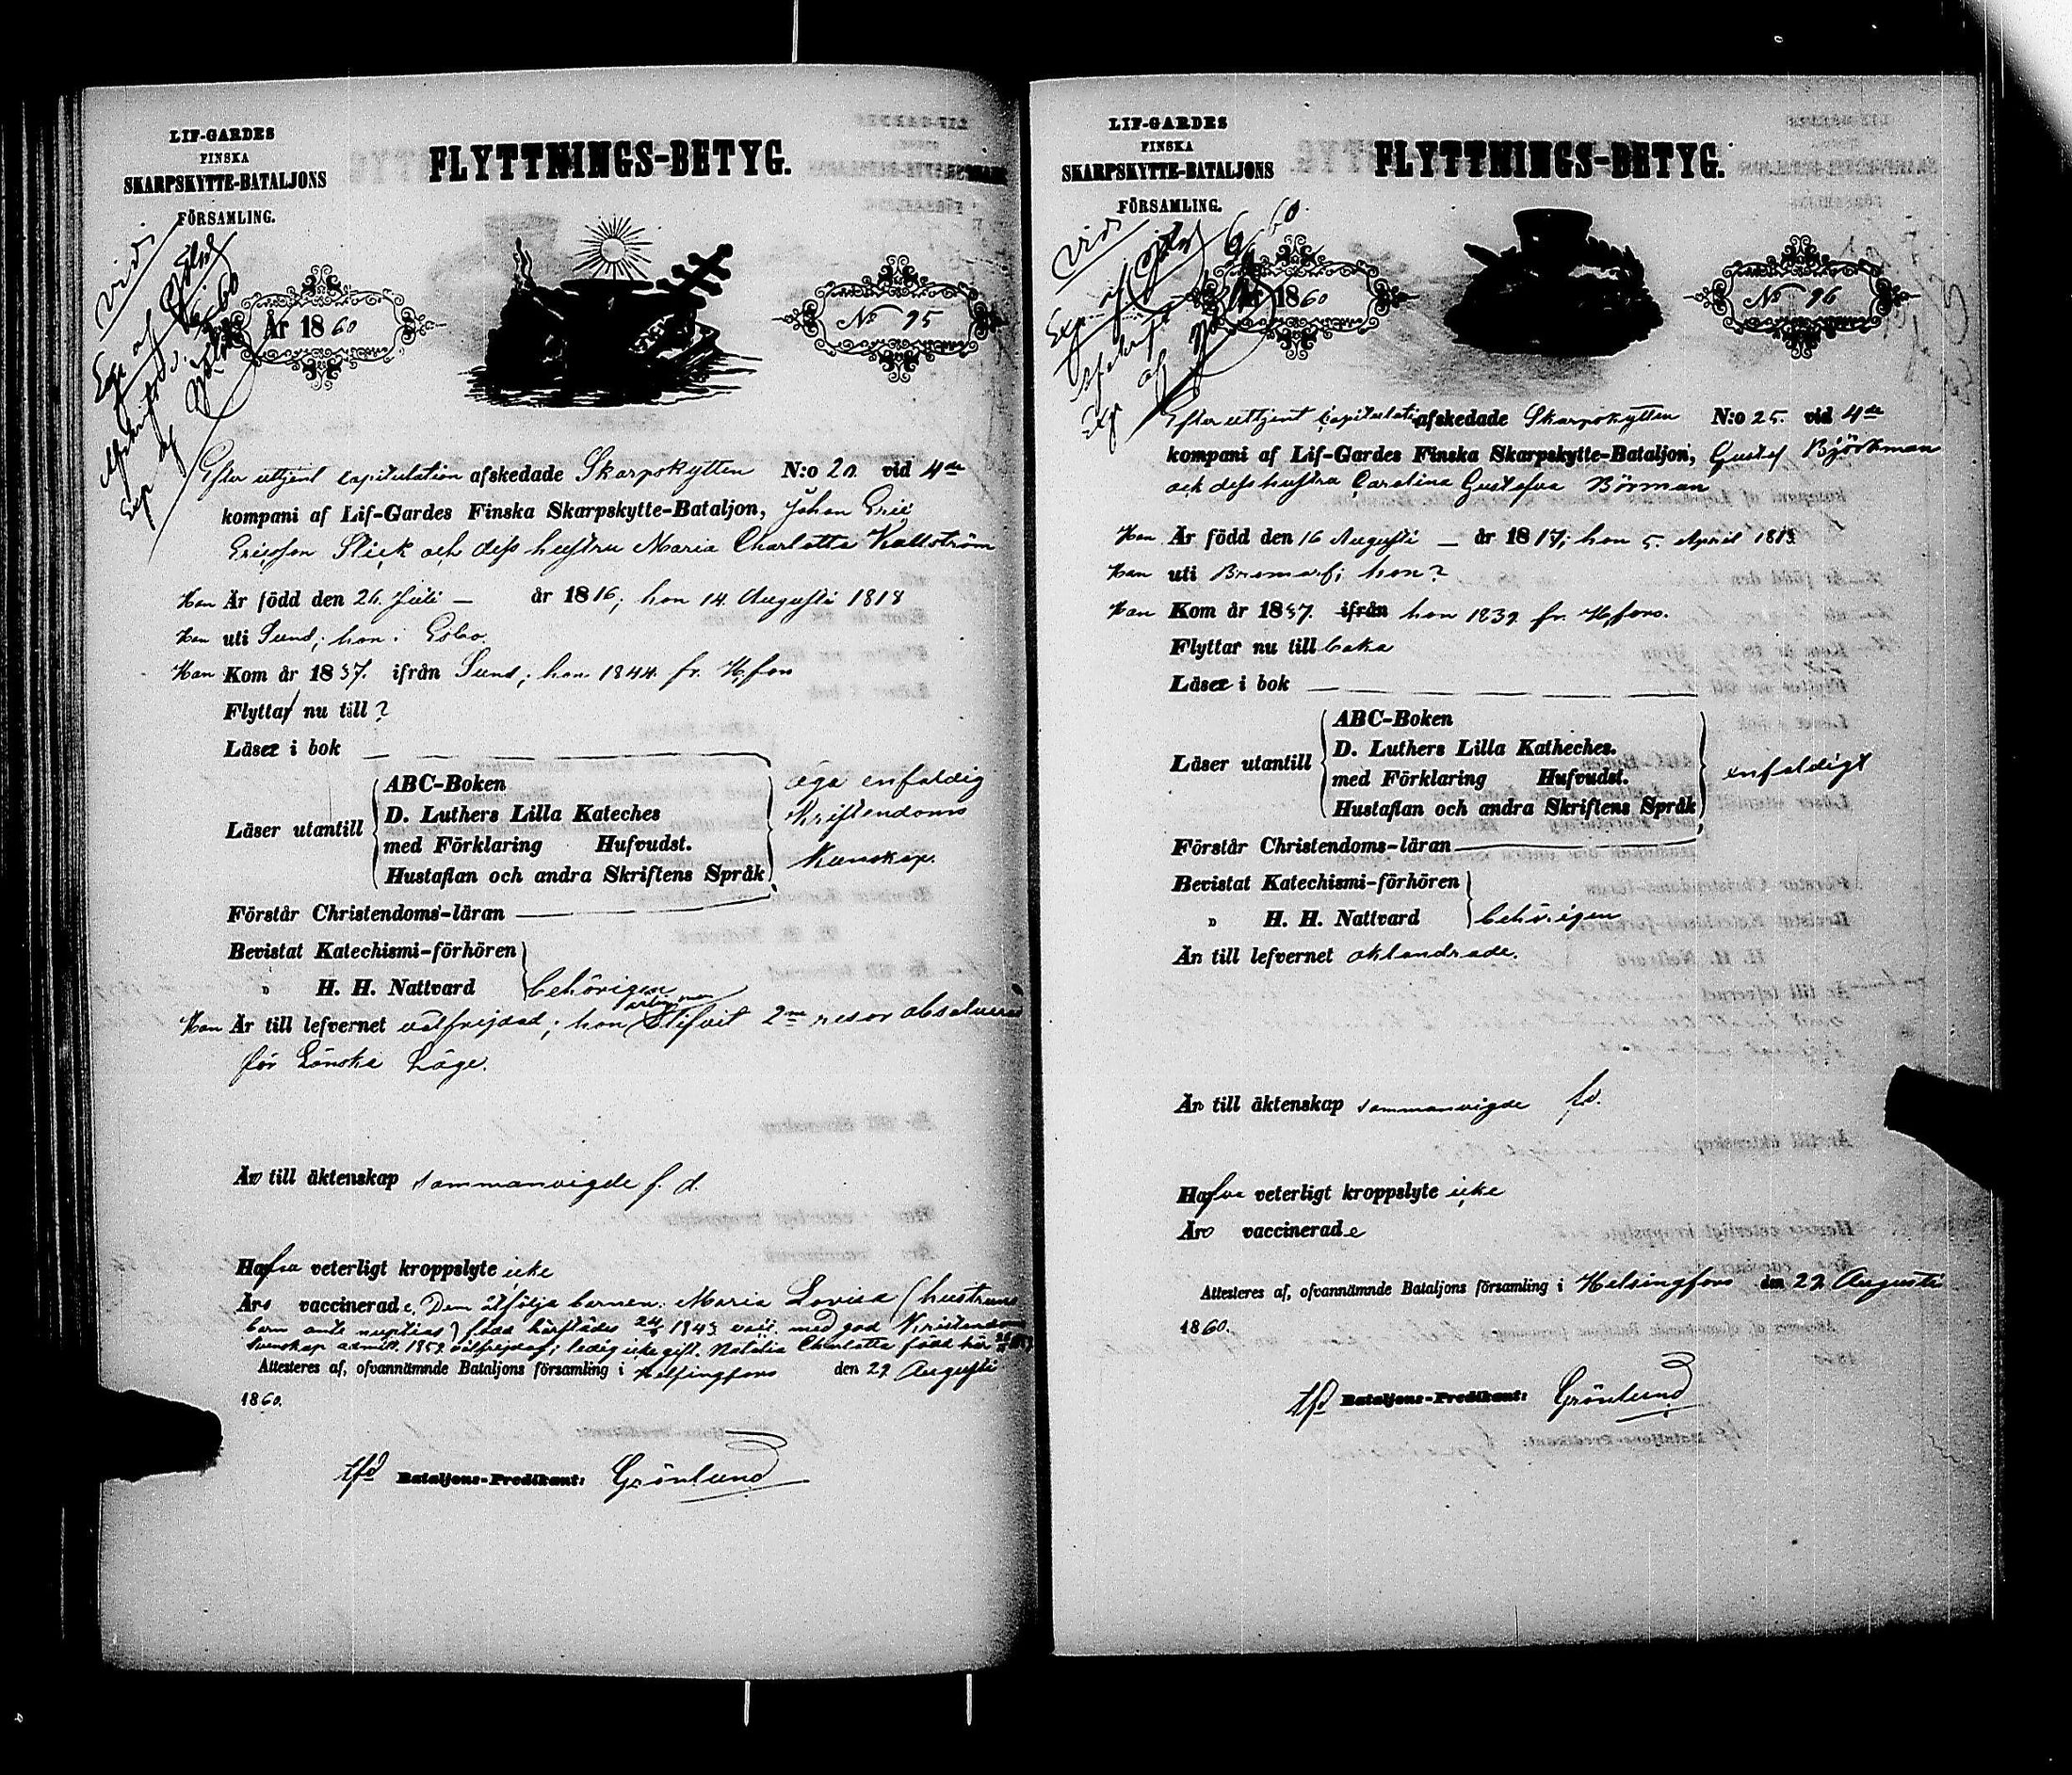 LIF-GARDES
FINSKA
SKARPSKYTTE-BATALJONS
FÖRSAMLING.
FLYTTNINGS-BETYG.
År 1860
No 95
Efter uttjent capitulation afskedade Skarpskytten N:o 20. vid 4de
kompani af Lif-Gardes Finska Skarpskytte-Bataljon, Johan Eric
Ericsson Slick och dess hustru Maria Charlotta Kallström
Han Är född den 26. Juli — år 1816; hon 14. Augusti 1818
Han uti Sund; hon i Esbo.
Han Kom år 1837. ifrån Sund; hon 1844. fr. H,fors
Flyttar nu till ?
Läser i bok
Läser utantill
ABC-Boken
D. Luthers Lilla Kateches
med Förklaring Hufvudst.
Hustaflan och andra Skriftens Språk
äga enfaldig
Kristendoms
Kunskap.
Förstår Christendoms-läran
Bevistat Katechismi-förhören
" H. H. Nattvard
behörigen
Han Är till lefvernet välfrejdad; hon blifvit 2ne resor absolverad
för Lönska Läge.
Äro till äktenskap sammanvigde f. d.
Hafva veterligt kroppslyte icke
Äro vaccinerade. Dem åtfölja barnen: Maria Lovisa (hustruns
barn ante nuptias) född härstädes 1843 vacc. med god Kristendoms
Kunskap admitt. 1859 välfrejdad; ledig icke gift. Natalia Charlotta född här
Attesteres af, ofvannämnde Bataljons församling i Helsingfors den 29 Augusti
1860.
tfd Bataljons-Predikant: Grönlund
LIF-GARDES
FINSKA
SKARPSKYTTE-BATALJONS
FÖRSAMLING.
FLYTTNINGS-BETYG.
År 1860
No 96
Efter uttjent Capitulation afskedade Skarpskytten N:o 25. vid 4de
kompani af Lif-Gardes Finska Skarpskytte-Bataljon, Gustaf Björkman
och dess hustru Carolina Gustafva Börman
Han Är född den 16 Augusti — år 1817; hon 5. April 1813
Han uti Bromarf; hon ?
Han Kom år 1837. ifrån hon 1839. fr. H,fors.
Flyttar nu till baka
Läser i bok
Läser utantill
ABC-Boken
D. Luthers Lilla Katheches.
med Förklaring Hufvudst.
Hustaflan och andra Skriftens Språk
enfaldigt
Förstår Christendoms-läran
Bevistat Katechismi-förhören
" H. H. Nattvard
behörigen
Än till lefvernet oklandrade.
Äro till äktenskap sammanvigde f.d.
Hafva veterligt kroppslyte icke
Äro vaccinerade
Attesteres af, ofvannämnde Bataljons församling i Helsingfors den 29 Augusti
1860.
tfd Bataljons-Predikant: Grönlund